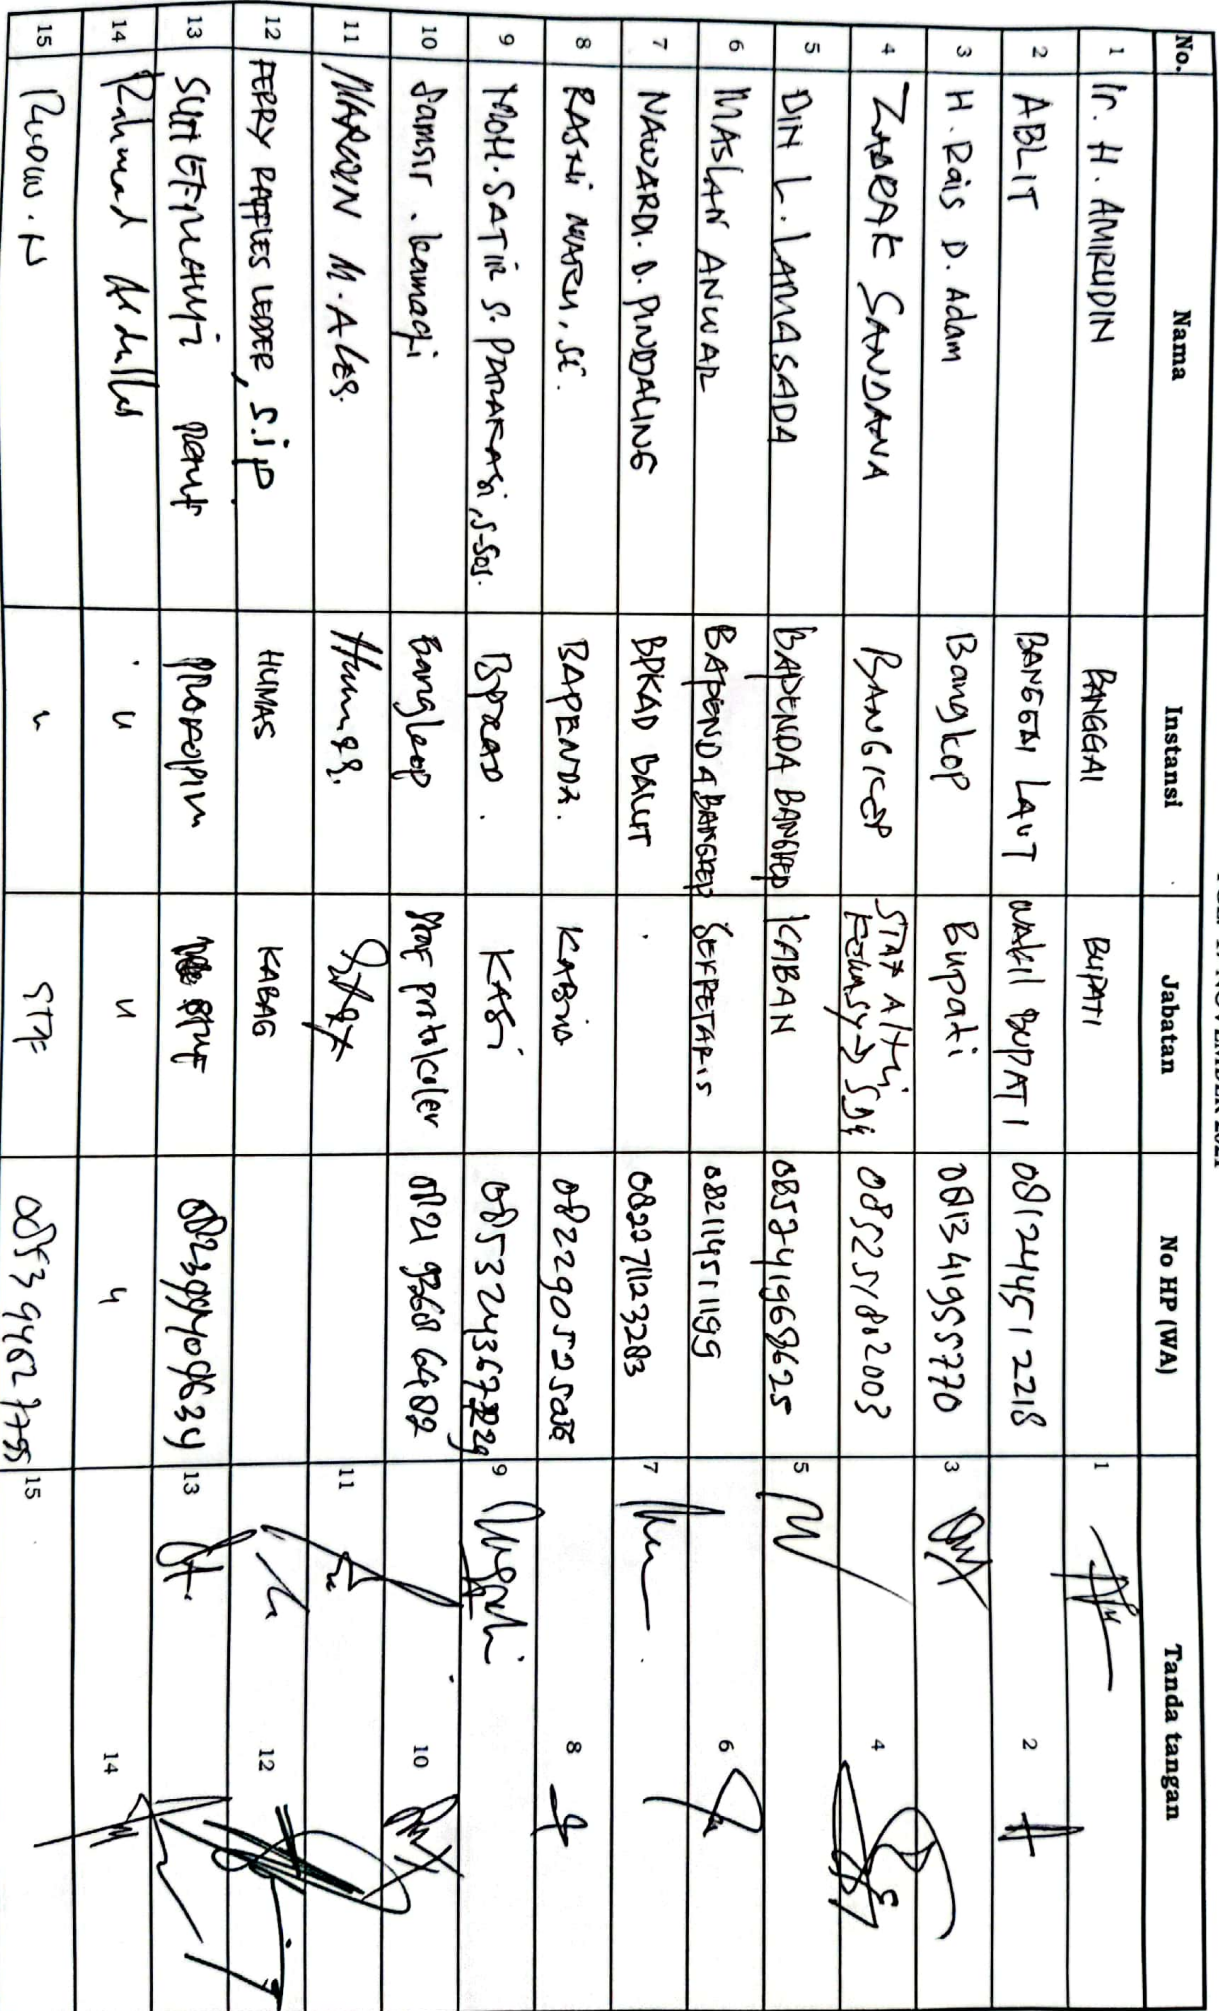 No. Nama Instansi Jabatan No HP (WA) Tanda tangan
1 Ir. H. AMIRUDIN BANGGAI BUPATI 1
2 ABLIT BANGGAI LAUT WAKIL BUPATI 081244512218 2
3 H. Rais D. Adam Bangkep Bupati 081341955770 3
4 ZABRAK SANDANA BANGKEP STAF Ahli 4
5 DIN L. LAMASADA BAPENDA BANGKEP KABAN 085241968625 5
6 MASLAN ANWAR BAPENDA BANGKEP SEKRETARIS 082114511199 6
7 NAWARDI. D. PINDDALING BPKAD BALUT 082271123283 7
8 RASHI MARU, SE. BAPENDA. KABID 8
9 MOH. SATIR S. PARAKASI, S.Sos. BPKAD. KASI 9
10 Samsir. Kamaqi Bangkep Staf protokoler 10
11 M. ALES. Humas. Staf 11
12 FERRY RAFFLES LEDDER, S.IP HUMAS KABAG 12
13 PROKOPIM STAF 13
14 Rahmad Abdullah " " " 14
15 Ridow. N " STAF 15